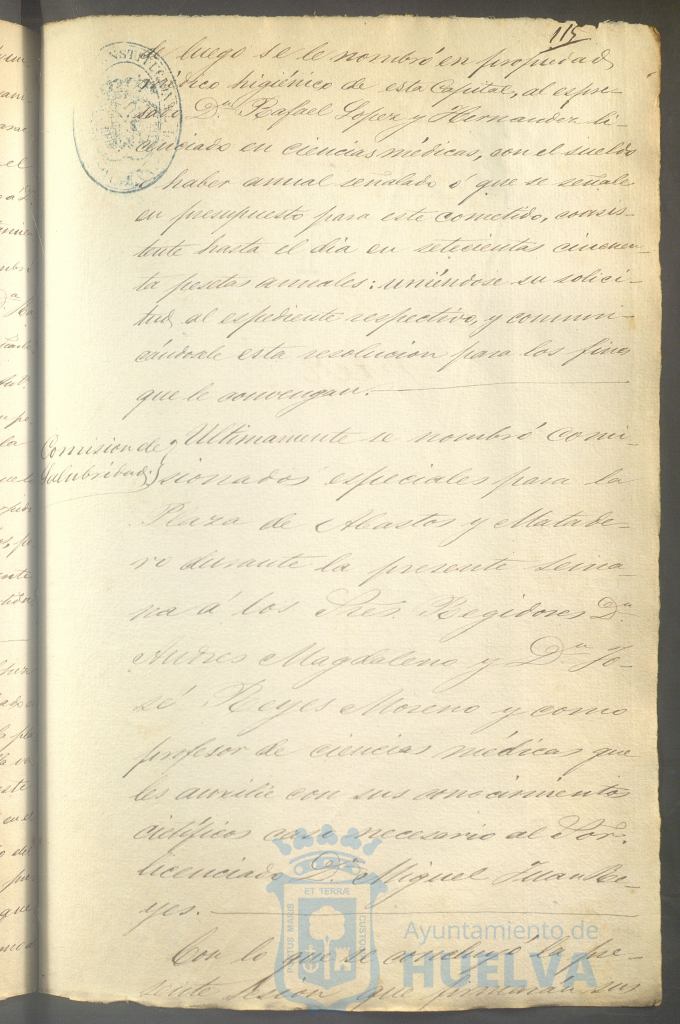 115
de luego se le nombró en propiedad
médico higiénico de esta Capital, al espre-
sado D.n Rafael Lopez y Hernandez li-
cenciado en ciencias médicas, con el sueldo
ó haber anual señalado ó que se señale
en presupuesto para este cometido, consis-
tente hasta el dia en setecientas cincuen-
ta pesetas anuales: uniéndose su solici-
tud al espediente respectivo, y comuni-
cándosele esta resolucion para los fines
que le convengan.
Comision de
Salubridad.
Ultimamente se nombró comi-
sionados especiales para la
Plaza de Abastos y Matade-
ro durante la presente sema-
na á los Sres. Regidores D.n
Andres Magdaleno y D.n Jo-
sé Reyes Moreno y como
profesor de ciencias médicas que
les auxilie con sus conocimientos
cietíficos caso necesario al Sor.
licenciado D.n Miguel Juan Re-
yes.
Con lo que se concluyó la pre-
sente sesion que firmarán sus
PORTUS MARIS ET TERRÆ CUSTODIA
Ayuntamiento de
HUELVA